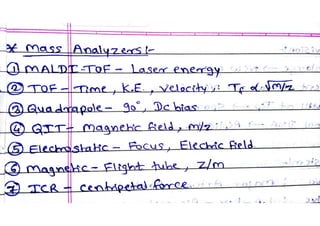 * Mass Analyzers:-
① MALDI-TOF - Laser energy
② TOF - Time, K.E, Velocity, ∴ Tf α √m/z
③ Quadrapole - 90°, Dc bias
④ QIT - Magnetic field, m/z
⑤ Electrostatic - Focus, Electric Field
⑥ Magnetic - Flight tube, Z/m
⑦ ICR - centripetal force